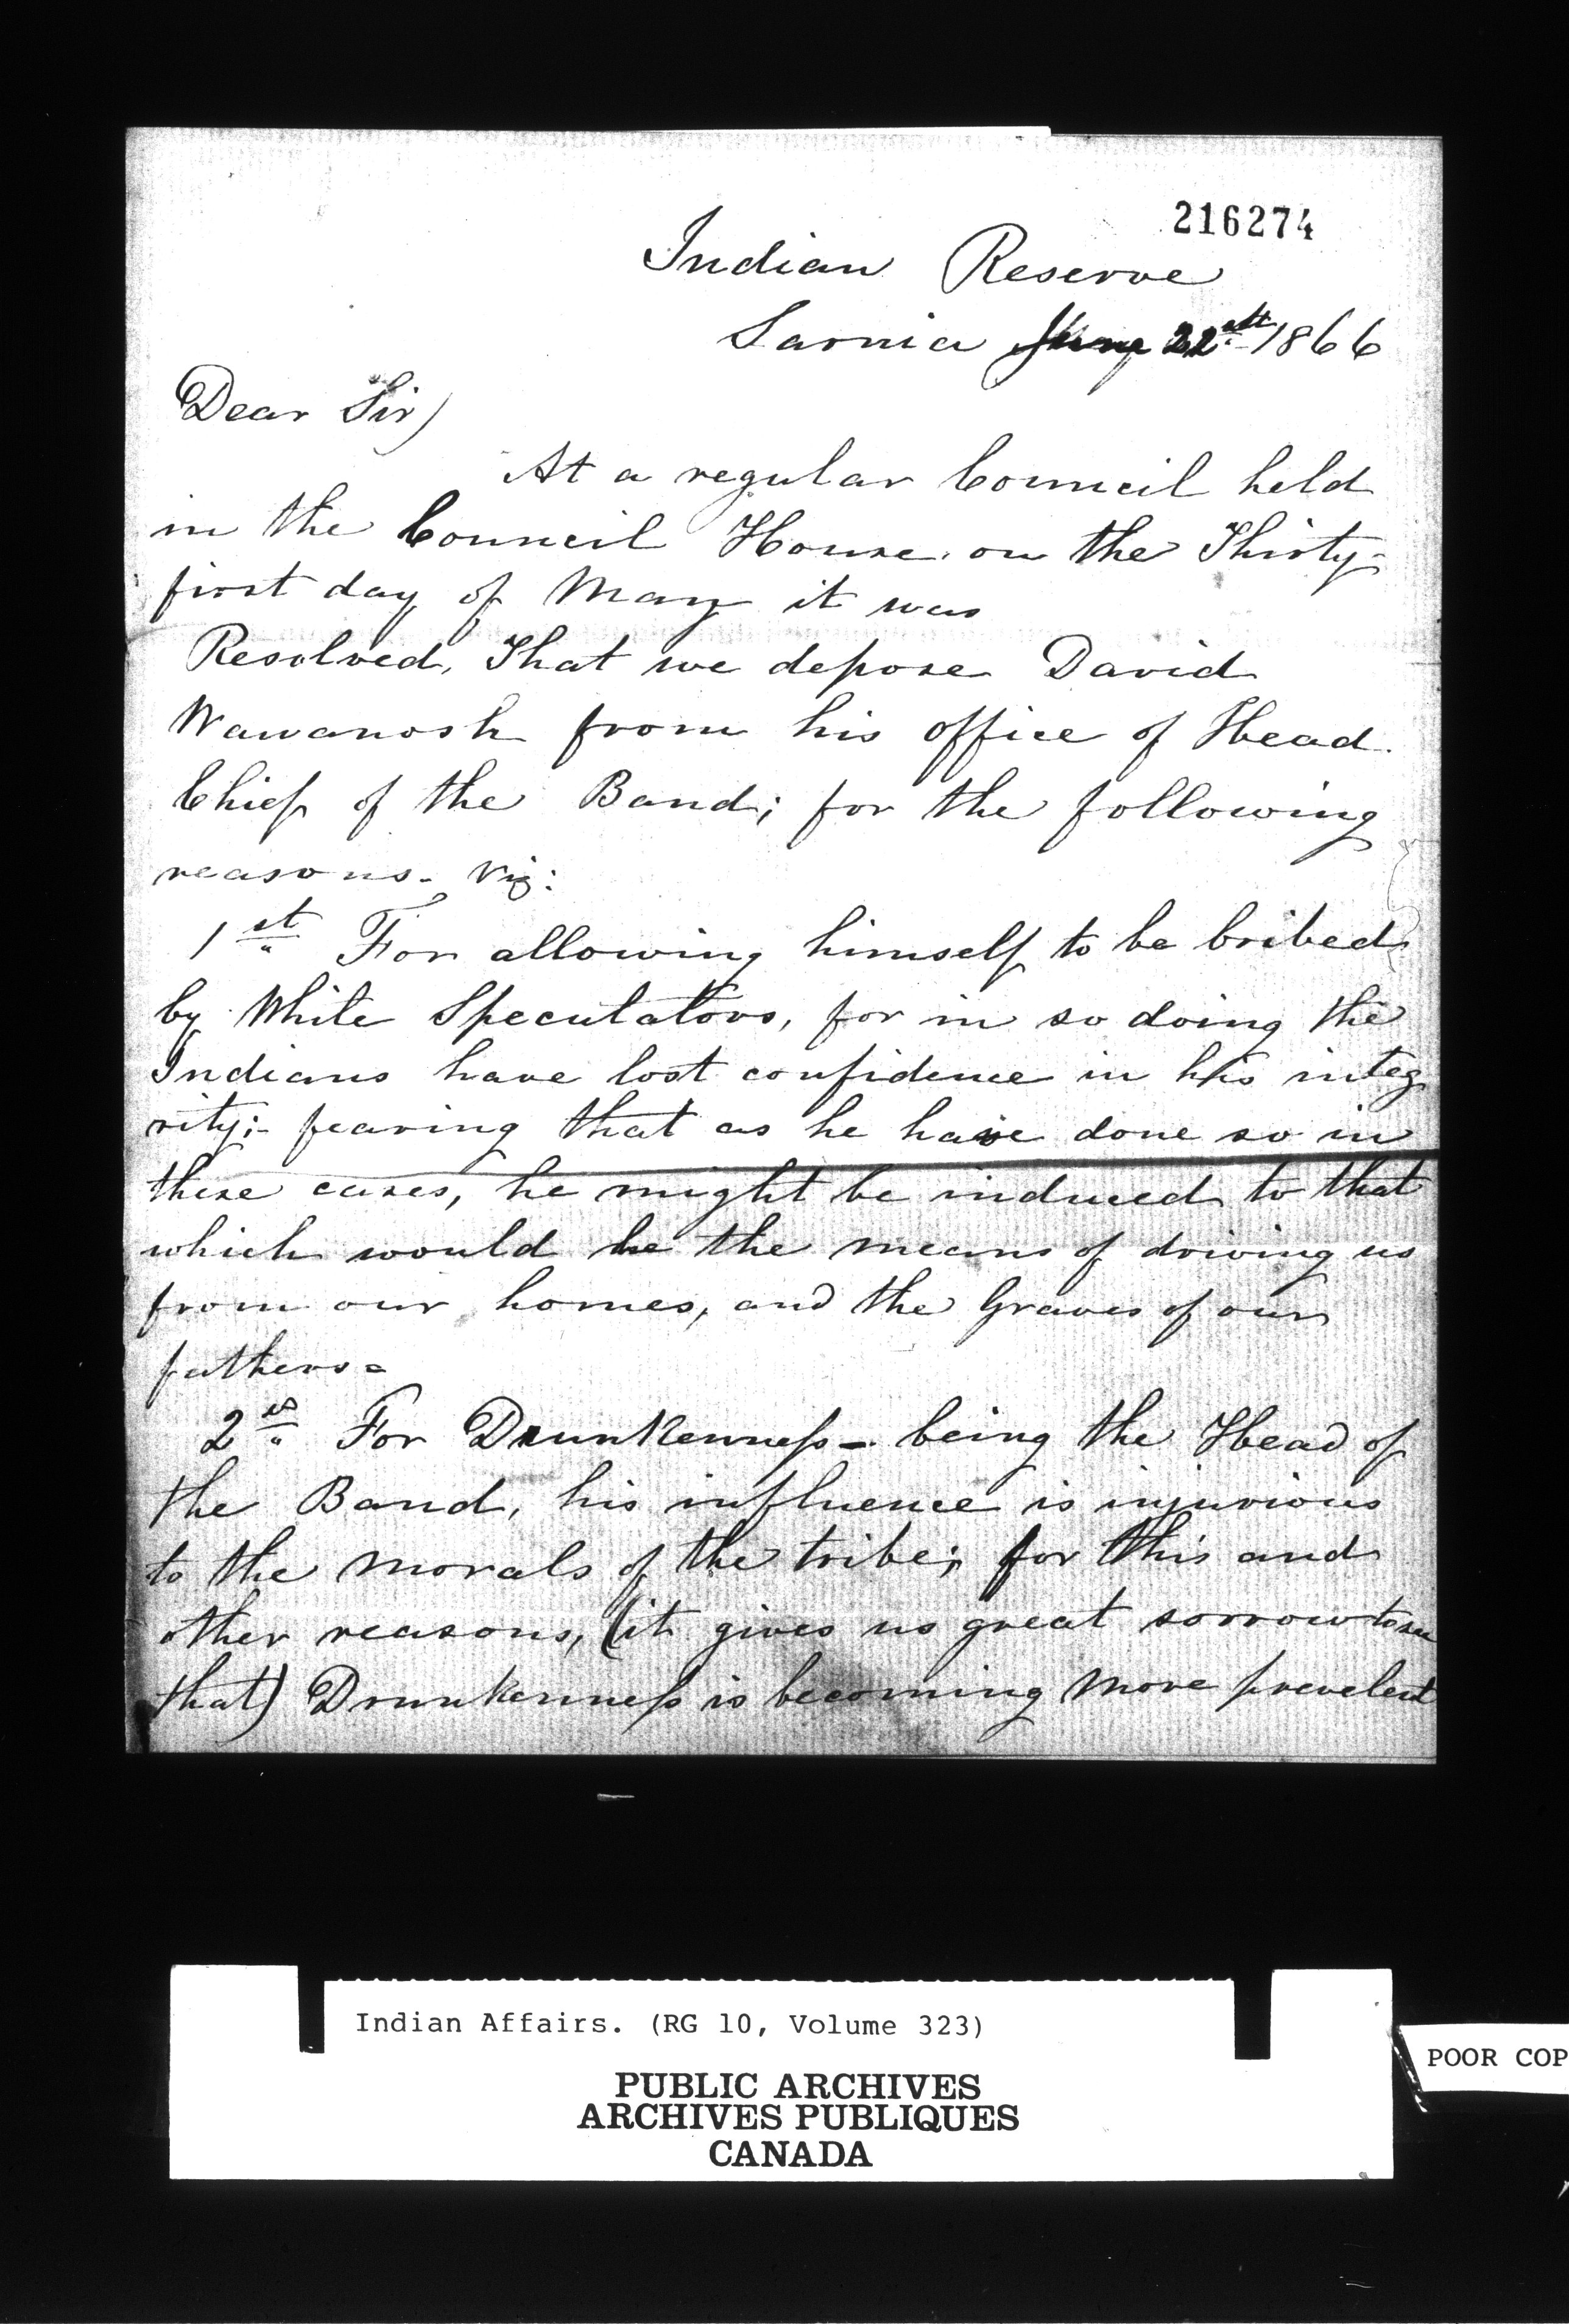 216274
Indian Reserve
Sarnia June 22 1866
Dear Sir)
At a regular Council held
in the Council House on the Thirty-
first day of May it was
Resolved, That we depose David
Wawanosh from his office of Head
Chief of the Band; for the following
reasons. Viz:
1st For allowing himself to be bribed
by White Speculators, for in so doing the
Indians have lost confidence in his integ
rity;- fearing that as he have done so in
these cases, he might be induced to that
which would be the means of driving us
from our homes, and the Graves of our
fathers=
2 For Drunkenness - being the Head of
the Band, his influence is injurious
to the morals of the tribe; for this and
other reasons, (it gives us great sorrow to
that) Drunkenness is becoming more prevelent
Indian Affairs. (RG 10, Volume 323)
PUBLIC ARCHIVES
ARCHIVES PUBLIQUES
CANADA
POOR COP